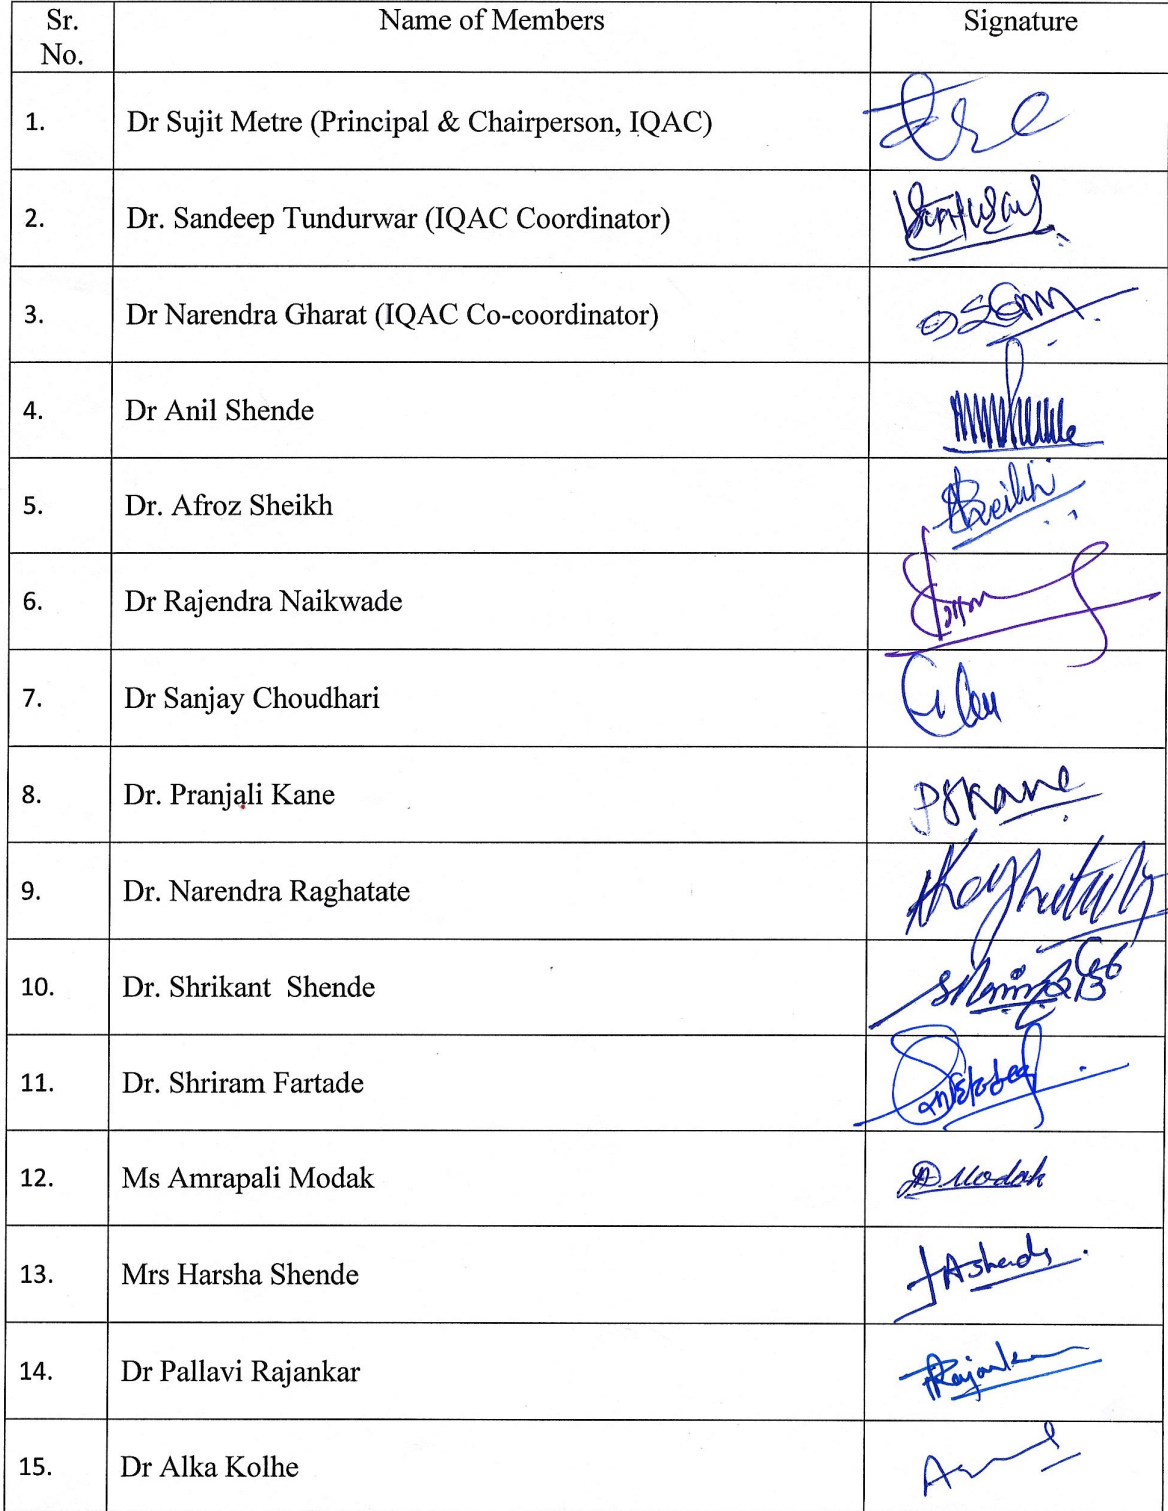 Sr. No. Name of Members Signature
1. Dr Sujit Metre (Principal & Chairperson, IQAC)
2. Dr. Sandeep Tundurwar (IQAC Coordinator)
3. Dr Narendra Gharat (IQAC Co-coordinator)
4. Dr Anil Shende
5. Dr. Afroz Sheikh
6. Dr Rajendra Naikwade
7. Dr Sanjay Choudhari
8. Dr. Pranjali Kane PSKane
9. Dr. Narendra Raghatate
10. Dr. Shrikant Shende
11. Dr. Shriram Fartade
12. Ms Amrapali Modak Modak
13. Mrs Harsha Shende
14. Dr Pallavi Rajankar
15. Dr Alka Kolhe